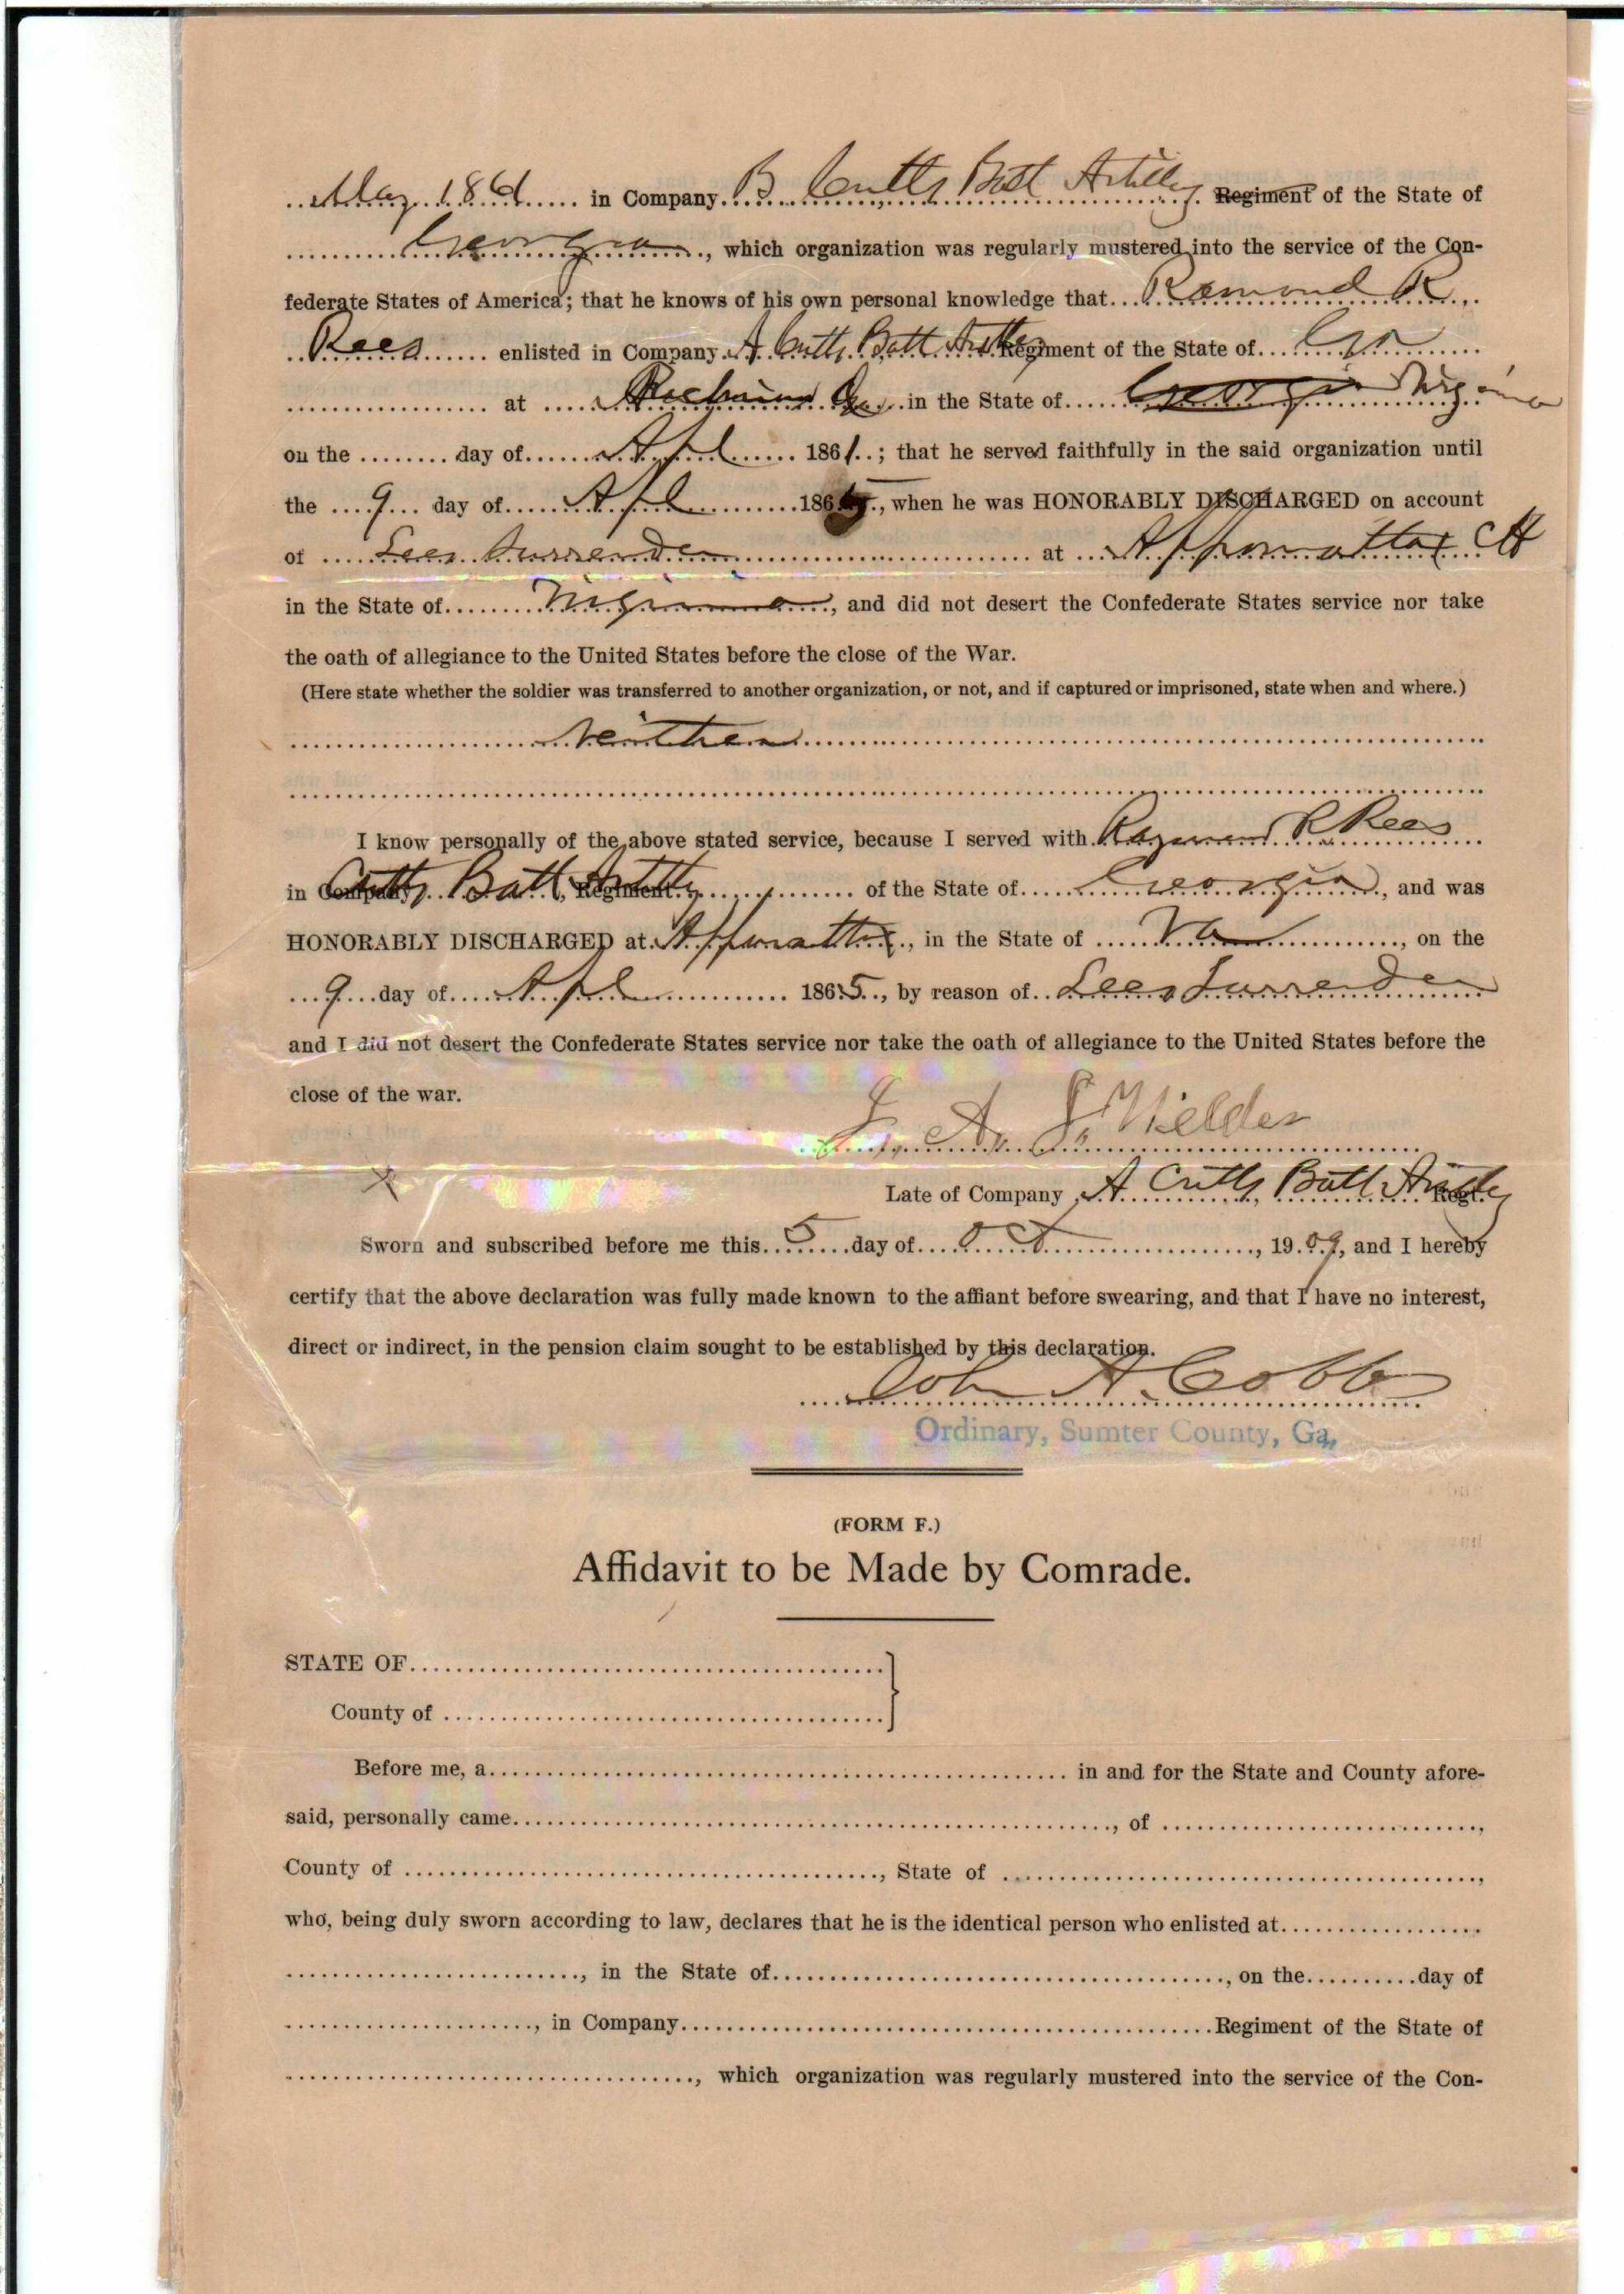 May 1861 in Company B Cutts Batt Artillery Regiment of the State of
Georgia, which organization was regularly mustered into the service of the Con-
federate States of America; that he knows of his own personal knowledge that Ramond R
Rees enlisted in Company A Cutts Batt Artlly Regiment of the State of Ga
at Richmond in the State of Georgia Virginia
on the ........ day of Apl 1861; that he served faithfully in the said organization until
the 9 day of Apl 1865, when he was HONORABLY DISCHARGED on account
of Lees Surrender at Appomattox CH
in the State of Virginia, and did not desert the Confederate States service nor take
the oath of allegiance to the United States before the close of the War.
(Here state whether the soldier was transferred to another organization, or not, and if captured or imprisoned, state when and where.)
Neither
I know personally of the above stated service, because I served with Raymond R Rees
in Company Cutts Batt Artlly, Regiment of the State of Georgia, and was
HONORABLY DISCHARGED at Appomattox, in the State of Va, on the
9 day of Apl 1865, by reason of Lees Surrender
and I did not desert the Confederate States service nor take the oath of allegiance to the United States before the
close of the war.
A. S.
Late of Company A Cutts Batt Artlly Regt.
Sworn and subscribed before me this 5 day of Oct, 1909, and I hereby
certify that the above declaration was fully made known to the affiant before swearing, and that I have no interest,
direct or indirect, in the pension claim sought to be established by this declaration.
John A. Cobb
Ordinary, Sumter County, Ga,
(FORM F.)
Affidavit to be Made by Comrade.
STATE OF
County of
Before me, a in and for the State and County afore-
said, personally came, of ,
County of , State of ,
who, being duly sworn according to law, declares that he is the identical person who enlisted at
, in the State of, on the day of
, in Company Regiment of the State of
, which organization was regularly mustered into the service of the Con-